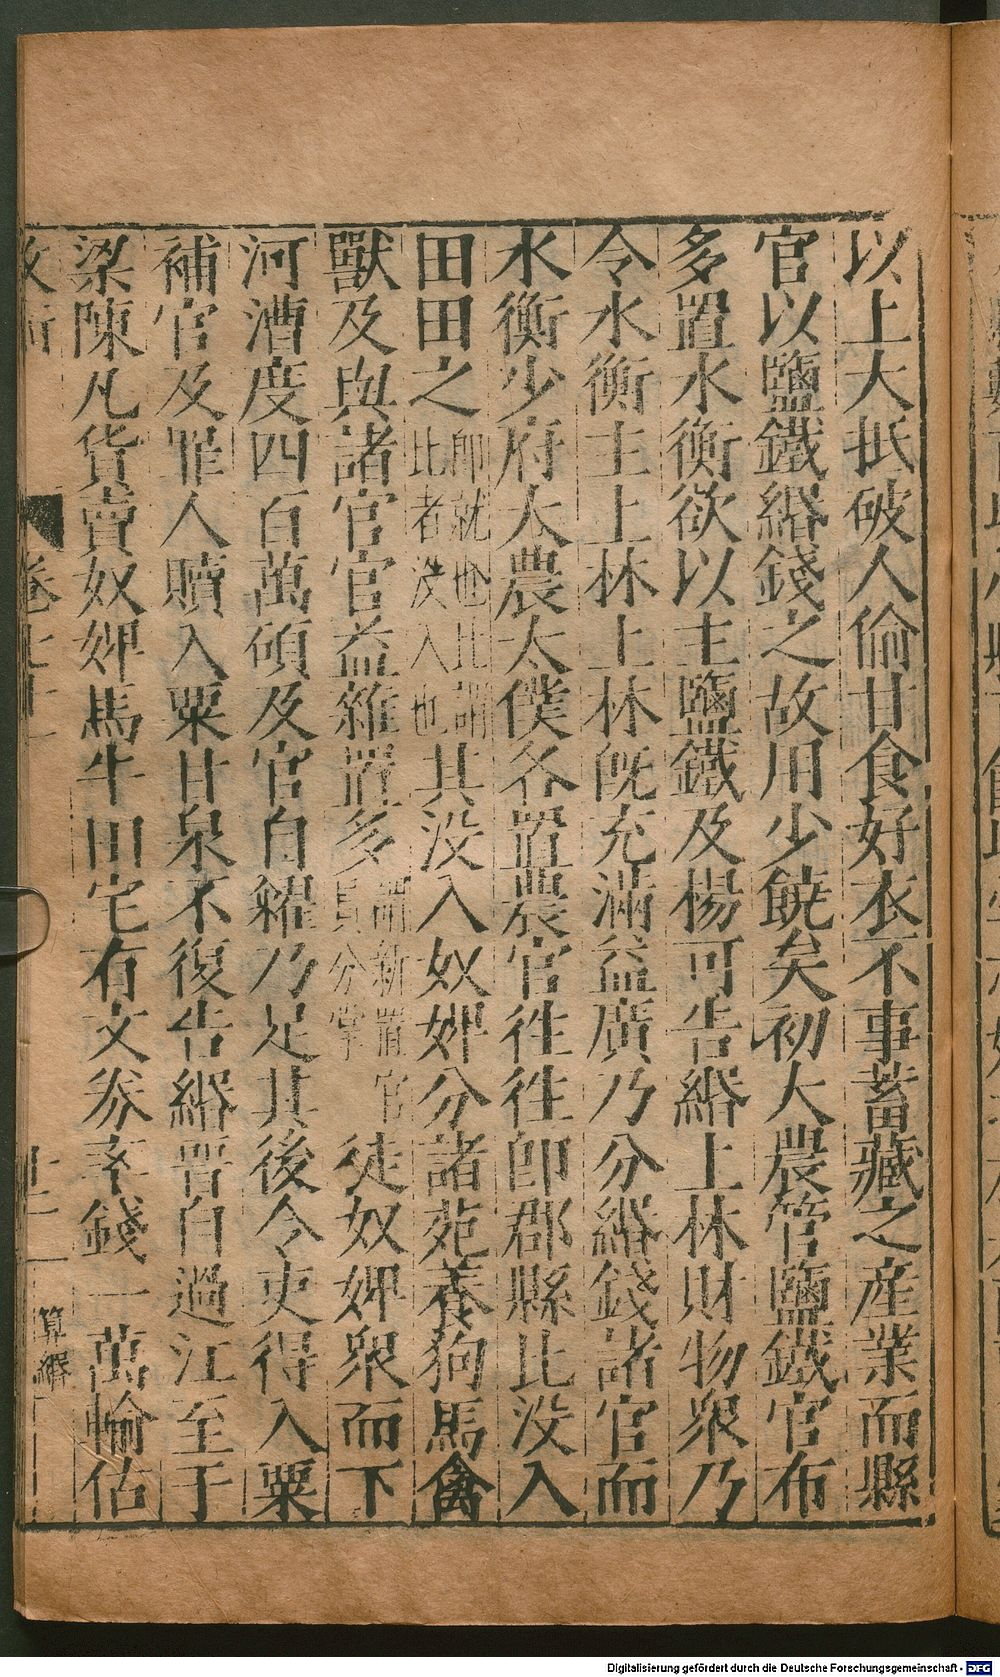 以上大抵破人偷甘食好衣不事蓄藏之產業而縣
官以鹽鐵緡錢之故用少饒矣初大農管鹽鐵官布
多置水衡欲以主鹽鐵及楊可告緡上林財物衆乃
令水衡主上林上林旣充滿益廣乃分緡錢諸官而
水衡少府大農太僕各置農官徃徃卽郡縣比没入
田田之卽就也比謂比者没入也其没入奴婢分諸苑養狗馬禽
獸及與諸官官益雜置多謂新置官員分掌徒奴婢衆而下
河漕度四百萬碩及官自糴乃足其後令吏得入粟
補官及罪人贖入粟甘泉不復告緡晋自過江至于
梁陳凡貨賣奴婢馬牛田宅有文券率錢一萬輸估
卷十一
十二
算緡
Digitalisierung gefördert durch die Deutsche Forschungsgemeinschaft - DFG